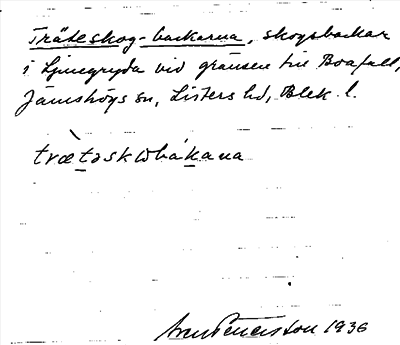 Träteskog-backarna, skogsbackar
i Ljungryda vid gränsen till Boafall,
Jämshögs sn, Listers hd, Blek. l.
trætəskωbákana
1936